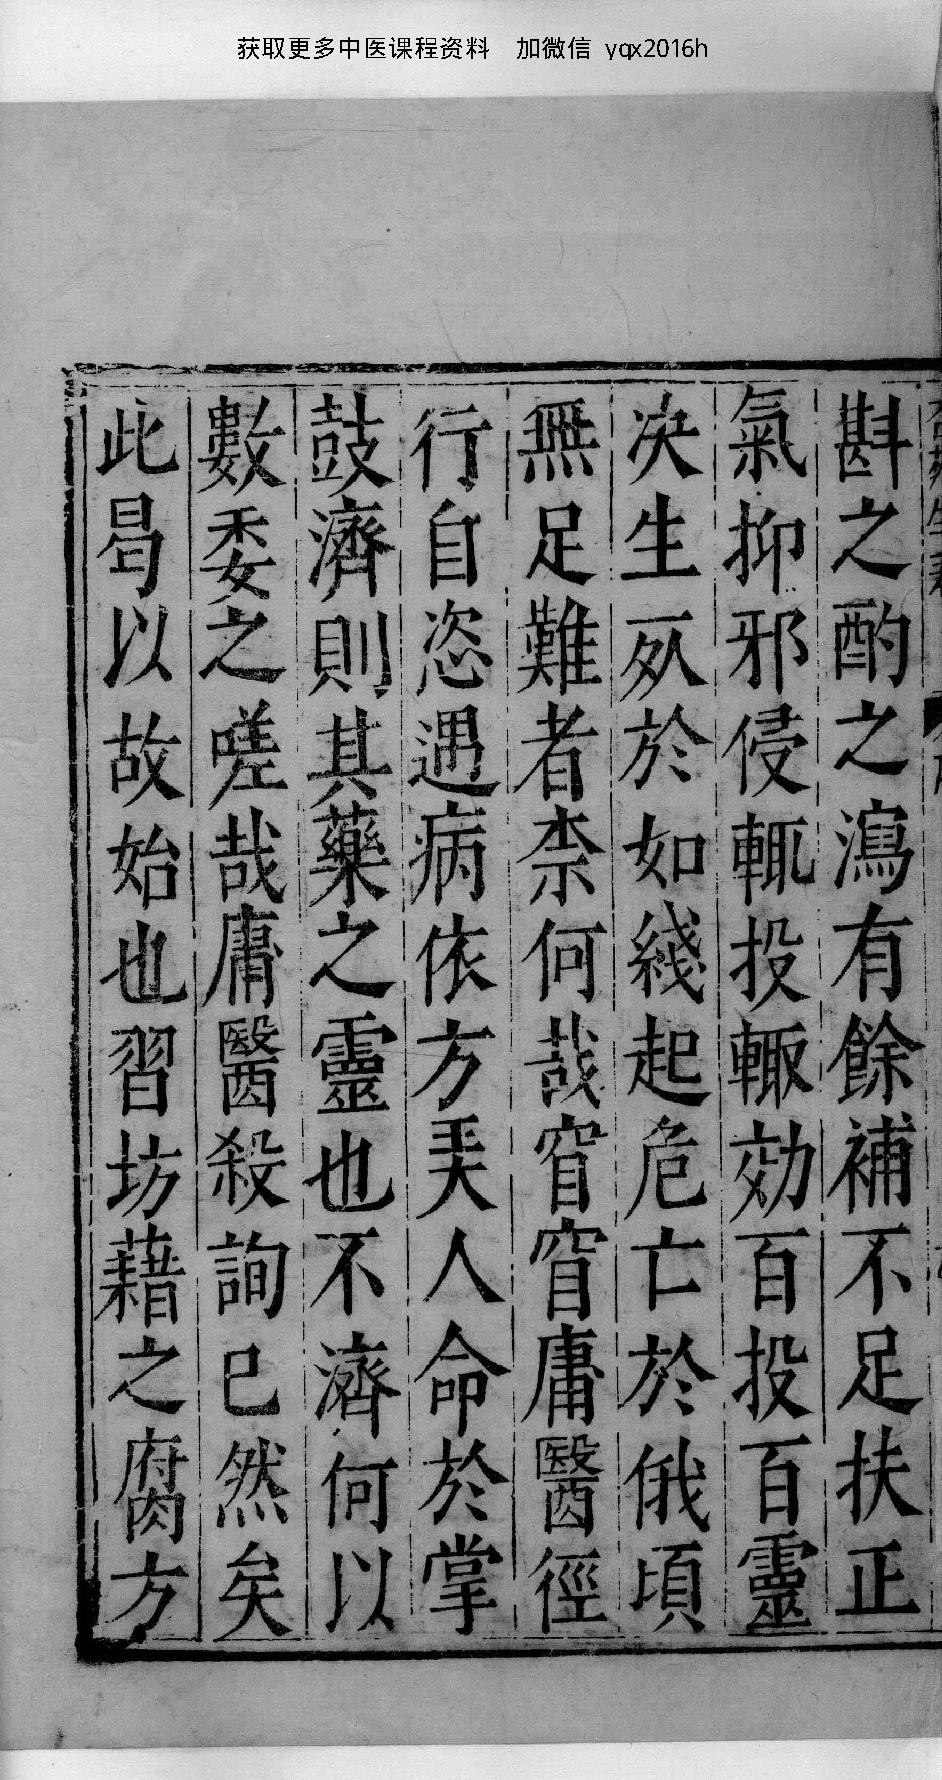 获取更多中医课程资料 加微信 yqx2016h
斟之酌之瀉有餘補不足扶正
氣抑邪侵輒投輙効百投百靈
决生死於如綫起危亡於俄頃
無足難者柰何哉窅窅庸醫徑
行自恣遇病依方弄人命於掌
鼓濟則其藥之靈也不濟何以
數委之嗟哉庸醫殺詢已然矣
此曷以故始也習坊藉之腐方